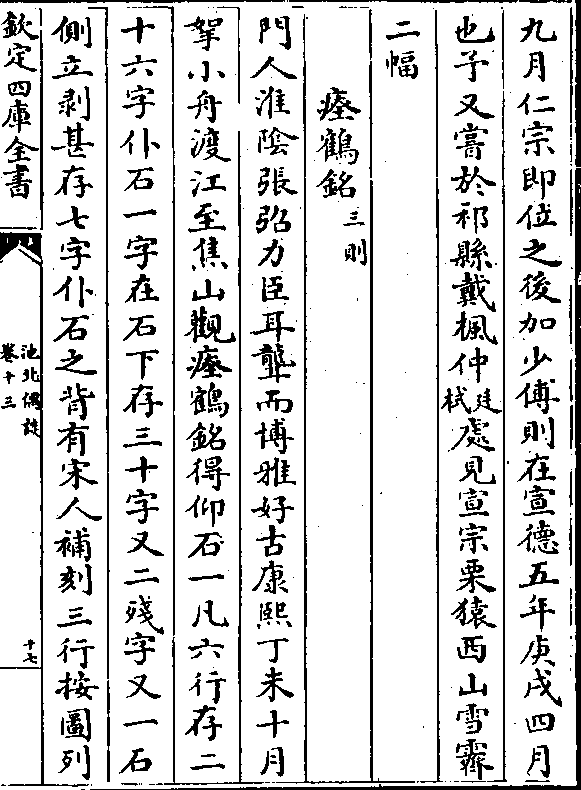 九月仁宗即位之後加少傅則在宣德五年庚戌四月
也予又嘗於祁縣戴楓仲廷栻處見宣宗栗猿西山雪霽
二幅
瘞鶴銘三則
門人淮陰張弨力臣耳聾而博雅好古康熙丁未十月
拏小舟渡江至焦山觀瘞鶴銘得仰石一凡六行存二
十六字仆石一字在石下存三十字又二殘字又一石
側立剥甚存七字仆石之背有宋人補刻三行按圖列
欽定四庫全書
池北偶談
卷十三
十七